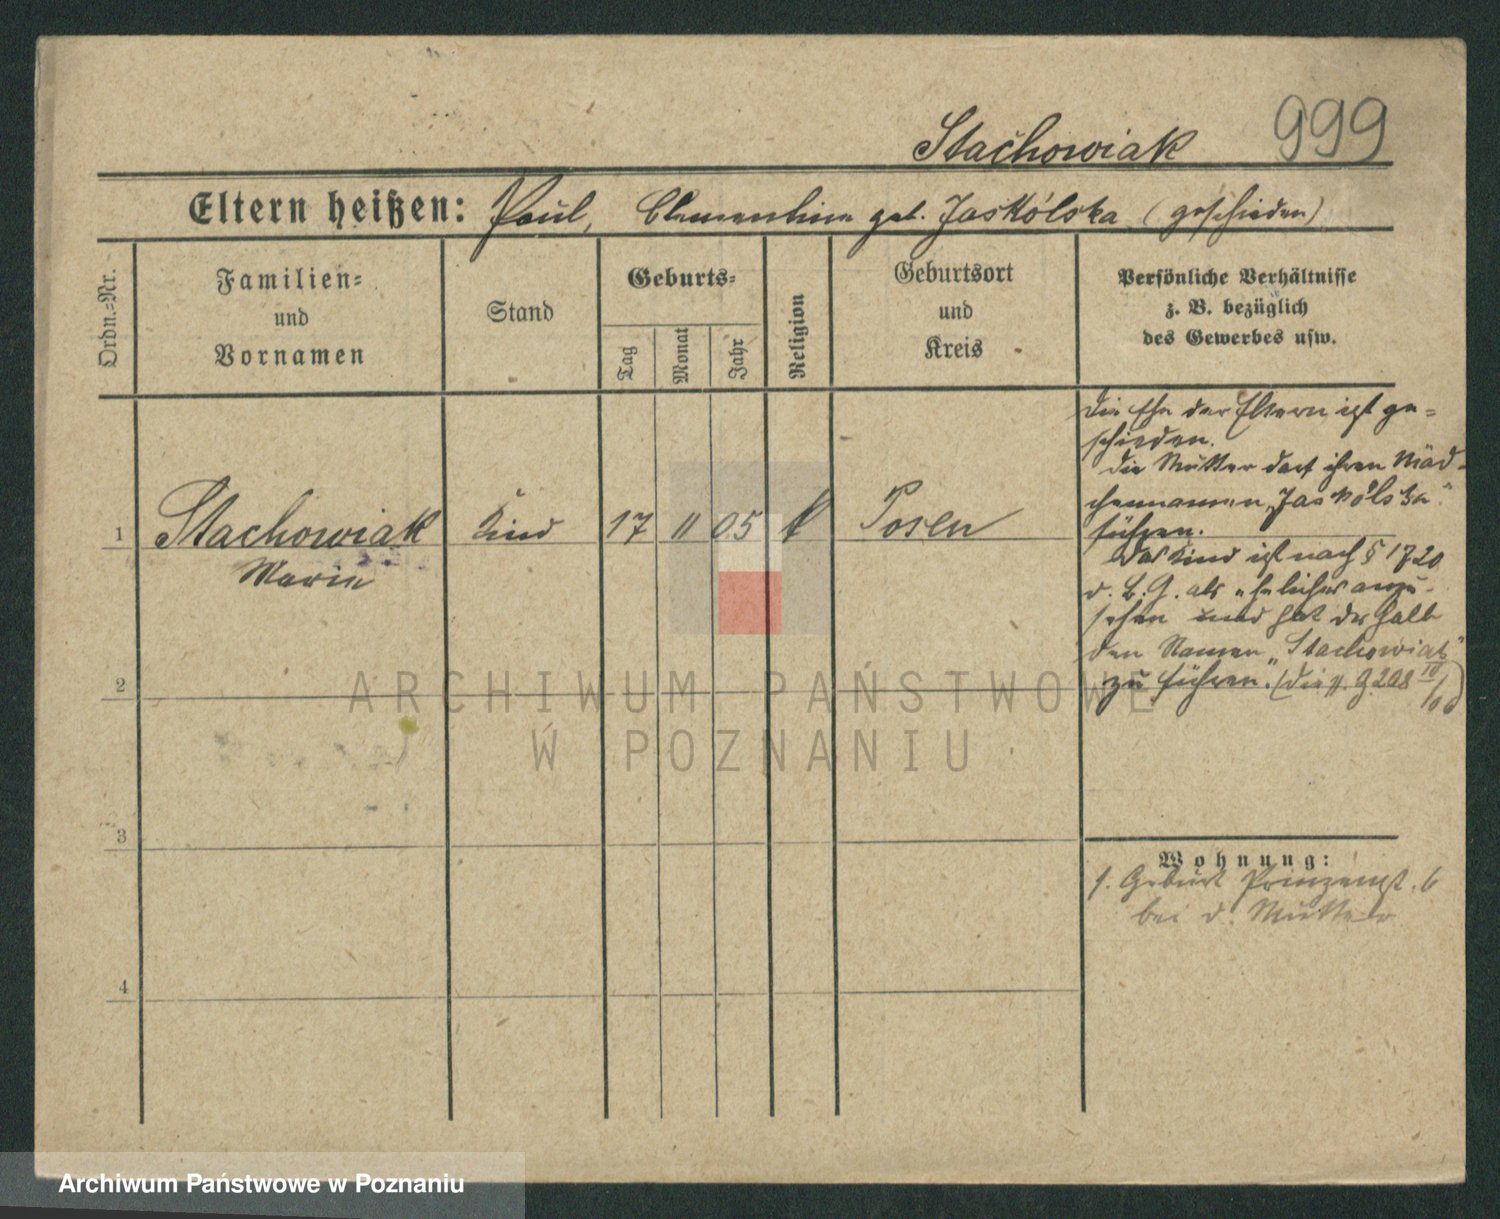 Stachowiak 999
Eltern heißen: Paul, Clementine geb. Jaskólska (geschieden)
Ordn.-Nr.
Familien-
und
Vornamen
Stand
Geburts-
Tag
Monat
Jahr
Religion
Geburtsort
und
Kreis
Persönliche Verhältnisse
z. B. bezüglich
des Gewerbes usw.
1 Stachowiak Kind 17 11 05 k Posen
Marie
die Ehe der Eltern ist ge=
schieden.
die Mutter darf ihren Mäd-
chennamen „Jaskólska"
führen.
Das Kind ist nach § 1720
d. B. G. als ehelich anzu-
sehen und hat deshalb
den Namen „Stachowiak"
zu führen." 9208
2
3
4
Wohnung:
s. Geburt Prinzenst. 6
bei d. Mutter
ARCHIWUM PAŃSTWOWE
W POZNANIU
Archiwum Państwowe w Poznaniu